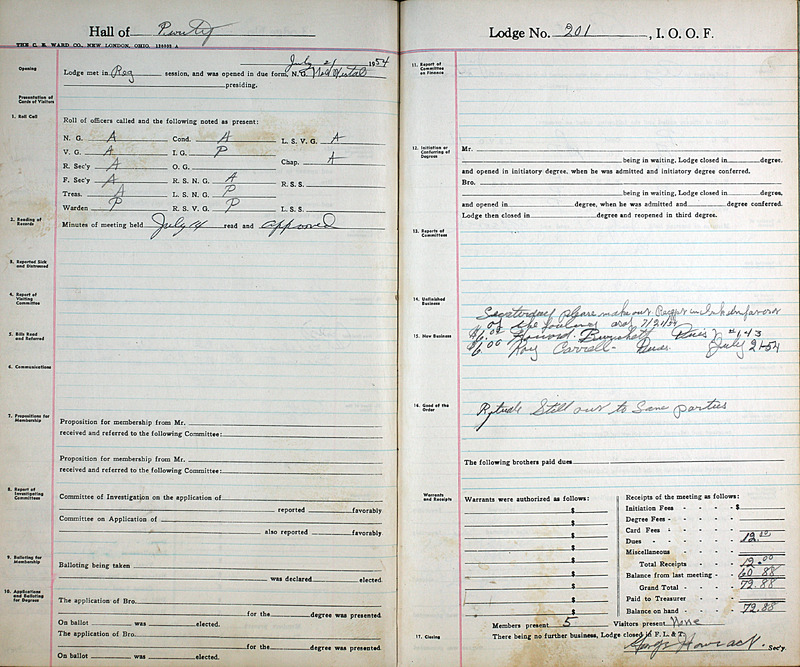 Hall of Purity
THE C. E. WARD CO., NEW LONDON, OHIO.
July 21 1954
Opening
Lodge met in Reg session, and was opened in due form, N. G.
presiding.
Presentation of Cards of Visitors
1. Roll Call
Roll of officers called and the following noted as present:
N. G. A Cond. A L. S. V. G. A
V. G. A I. G. P
R. Sec'y A O. G. Chap. A
F. Sec'y A R. S. N. G. A R. S. S.
Treas. A L. S. N. G. P
Warden P R. S. V. G. P L. S. S.
2. Reading of Records
Minutes of meeting held July 4 read and approved
3. Reported Sick and Distressed
4. Report of Visiting Committee
5. Bills Read and Referred
6. Communications
7. Propositions for Membership
Proposition for membership from Mr.
received and referred to the following Committee:
Proposition for membership from Mr.
received and referred to the following Committee:
8. Report of Investigating Committees
Committee of Investigation on the application of
reported favorably
Committee on Application of
also reported favorably
9. Balloting for Membership
Balloting being taken
was declared elected.
10. Applications and Balloting for Degrees
The application of Bro.
for the degree was presented.
On ballot was elected.
The application of Bro.
for the degree was presented.
On ballot was elected.
Lodge No. 201, I. O. O. F.
11. Report of Committee on Finance
12. Initiation or Conferring of Degrees
Mr.
being in waiting, Lodge closed in degree,
and opened in initiatory degree, when he was admitted and initiatory degree conferred.
Bro.
being in waiting, Lodge closed in degree,
and opened in degree, when he was admitted and degree conferred.
Lodge then closed in degree and reopened in third degree.
13. Reports of Committees
14. Unfinished Business
please make out Receipts in favor
of the
15. New Business
$6.00 Dues
$6.00 Roy Carrell - Dues July 21-54
16. Good of the Order
Rituals Still out to Same parties
The following brothers paid dues
Warrants and Receipts
Warrants were authorized as follows:
$
$
$
$
$
$
$
$
$
Receipts of the meeting as follows:
Initiation Fees - $
Degree Fees -
Card Fees -
Dues - 12.00
Miscellaneous
Total Receipts 12.00
Balance from last meeting - 60.88
Grand Total - 72.88
Paid to Treasurer -
Balance on hand - 72.88
Members present 5 Visitors present None
17. Closing
There being no further business, Lodge closed in F. L. & T.
Sec'y.